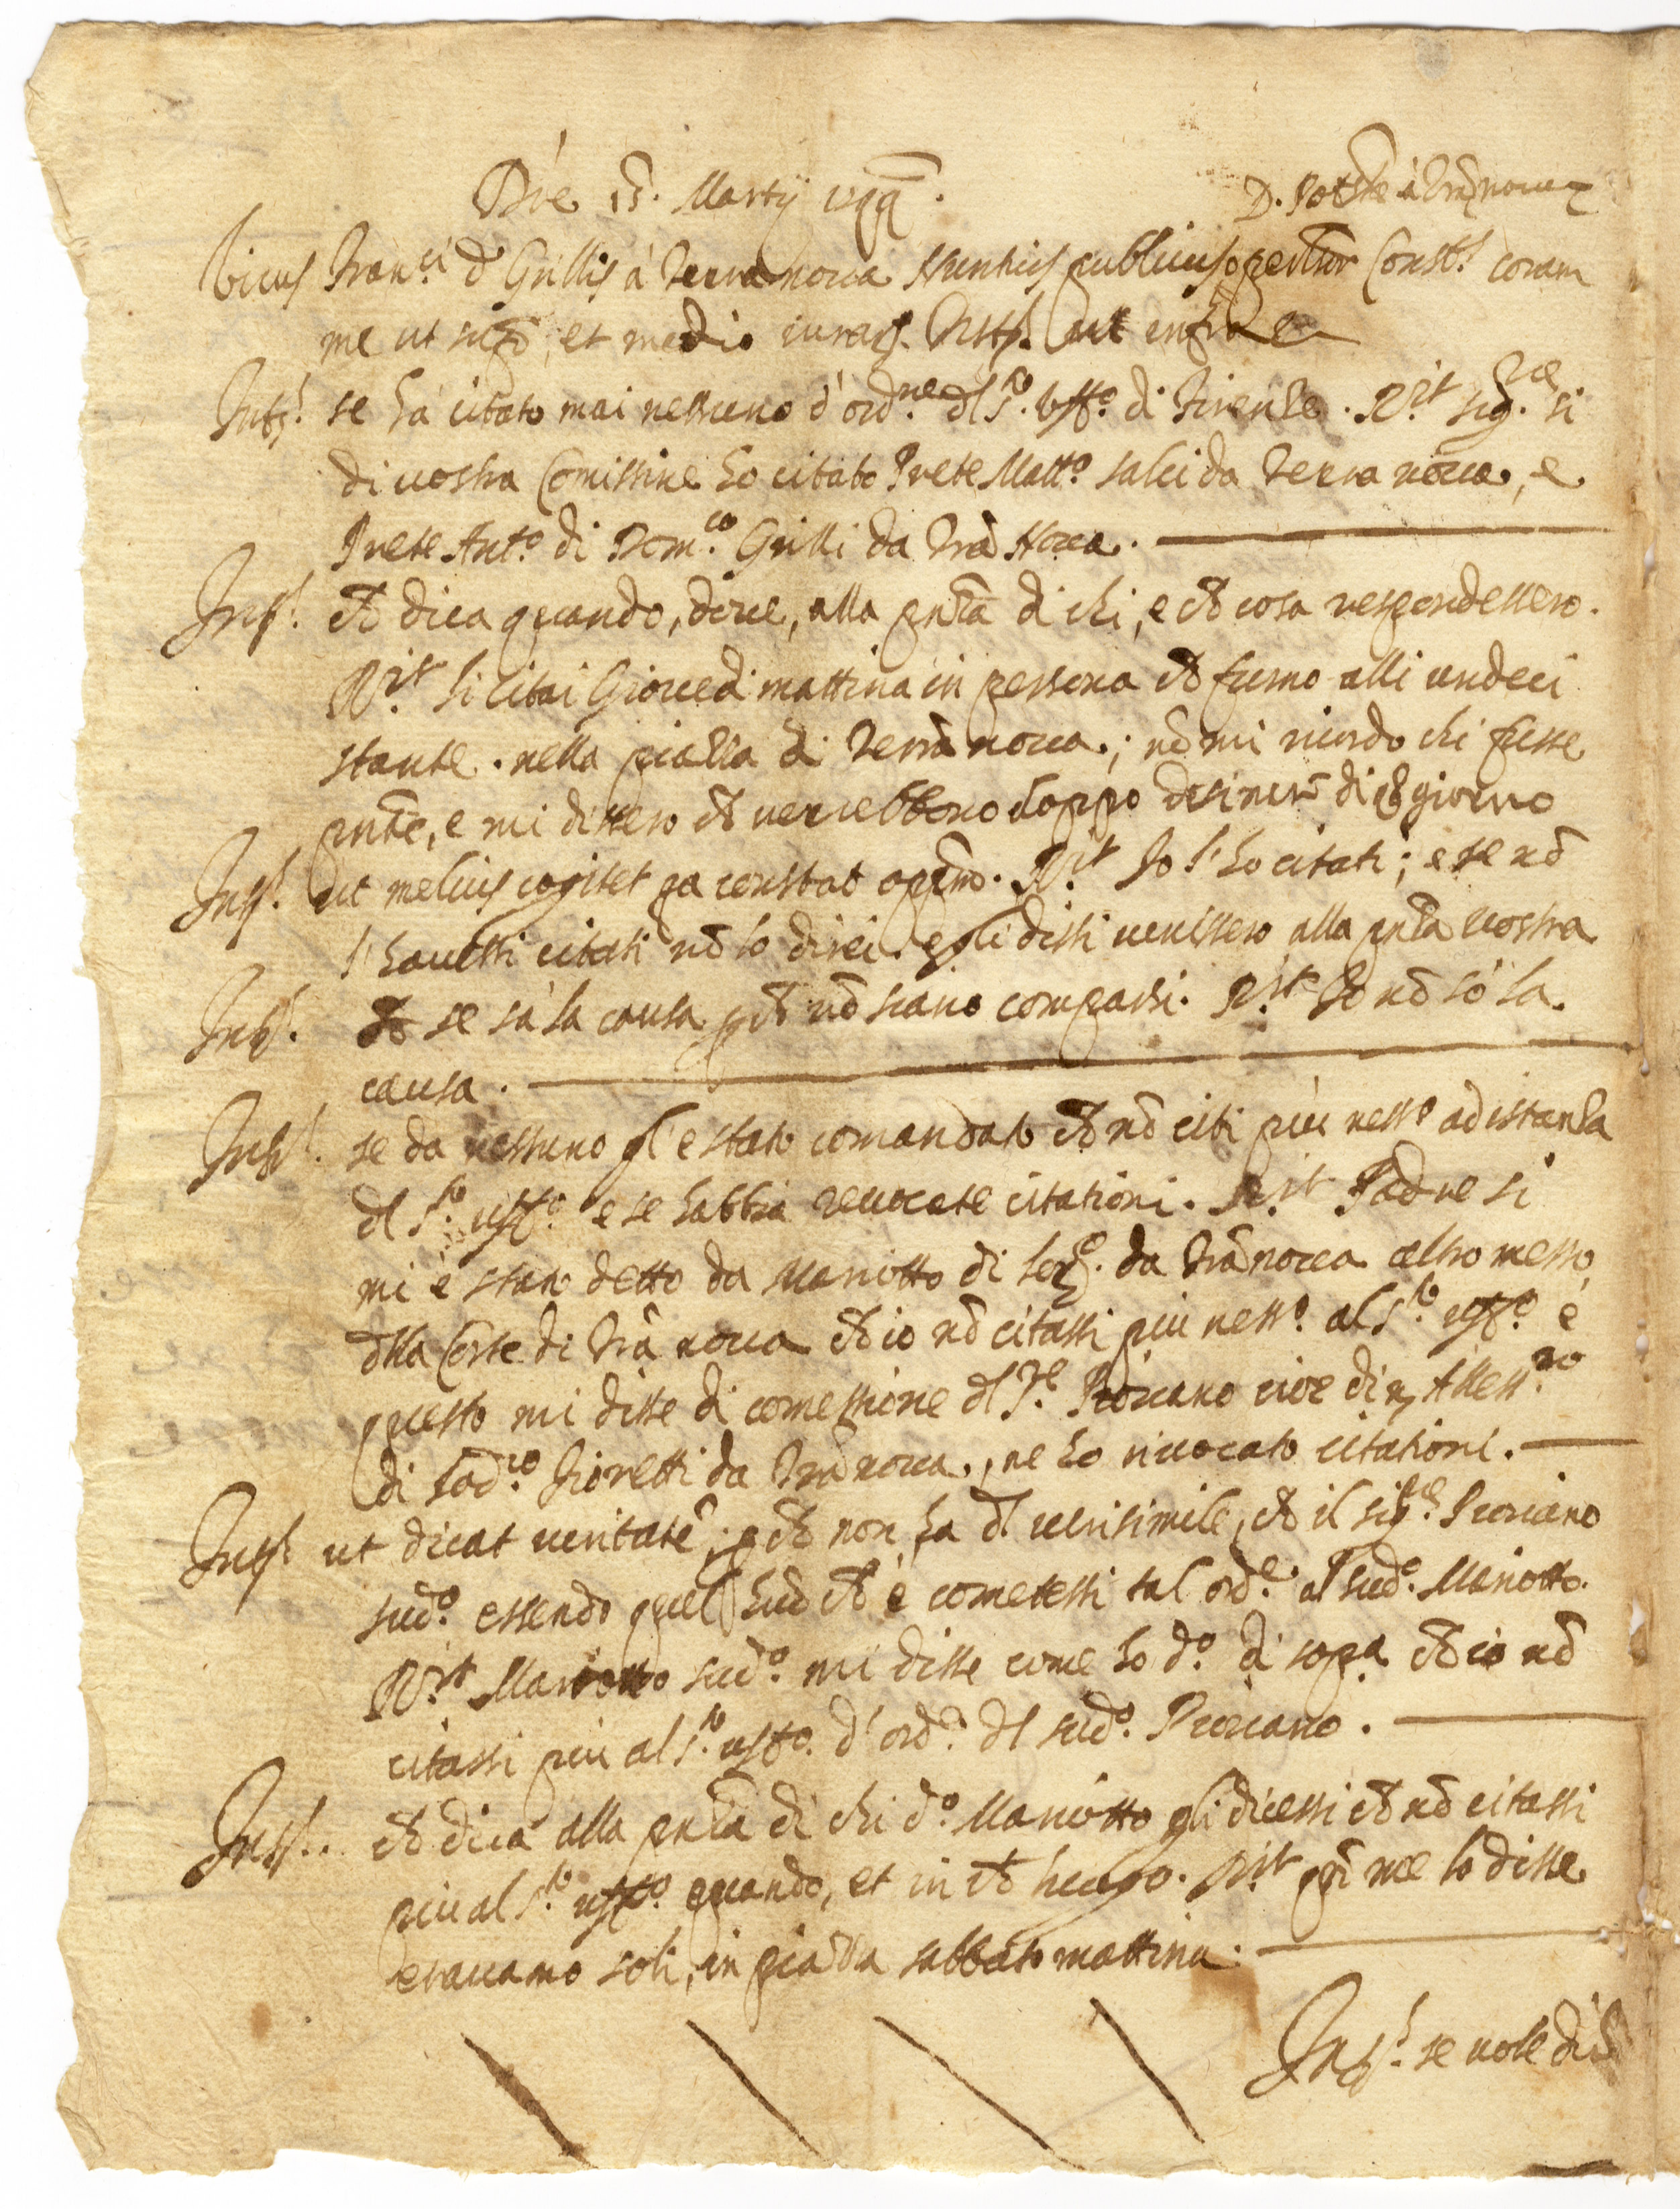 Die 15. Martij
D.
Vicus Franci d Grillis à Terranova Nuntius publicus Constus coram
me ut supa, et medio iurato. ut infra
Intus. se hà citato mai nessuno d'ordne dl Sto. Uffo. di Firenze. Rit sigre si
di vostra Comissine ho citato Prete Matto. Salci da Terra nova, e
Prete Anto. di Domco. Grilli da Tra Nova.
Intus. ch dica quando, dove, alla pnza di chi, e ch cosa respondessero.
Rit li citai Giovedi mattina in persona ch furno alli undeci
stante. nella piazza di Terra nova; nō mi ricordo chi fusse
pnte, e mi dissero ch verrebbono doppo desinare di giorno
Intus. ut melius cogitet constat oppmo. Rit Io l'ho citati; e se nō
l'havessi citati nō lo direi. e gli dissi venissero alla pnza vostra
Intus. ch se sà la causa pch nō siano comparsi. Rit Io nō sò la
causa.
Intus. se da nessuno gl'è stato comandato ch nō citi più nesso ad istanza
dl Sto. uffo. e se habbia revocate citationi. Rit Padre si
mi è stato detto da Mariotto di da Tra nova altro messo
dlla Corte di Tra nova ch io nō citassi piu nesso. al Sto. uffo. e
questo mi disse di comessione dl Sre. Piovano cioe di Alessro
di Lodco. Fioretti da Tra nova, ne ho rivocato citationi.
Intus ut dicat veritatē; pch non ha dl verisimile, ch il sigre Piovano
sudo. essendo quel ch è cometessi tal orde. al sudo. Mariotto.
Rit Mariotto sudo. mi disse come ho do. di sopa ch io nō
citassi piu al Sto. uffo. d'orde. dl sudo. Piovano.
Intus. ch dica alla pnza di chi do. Mariotto gli dicessi ch nō citassi
piu al Sto. uffo. quando, et in ch luogo. Rit me lo disse
eravamo soli, in piazza sabbato mattina.
Intus. se vole